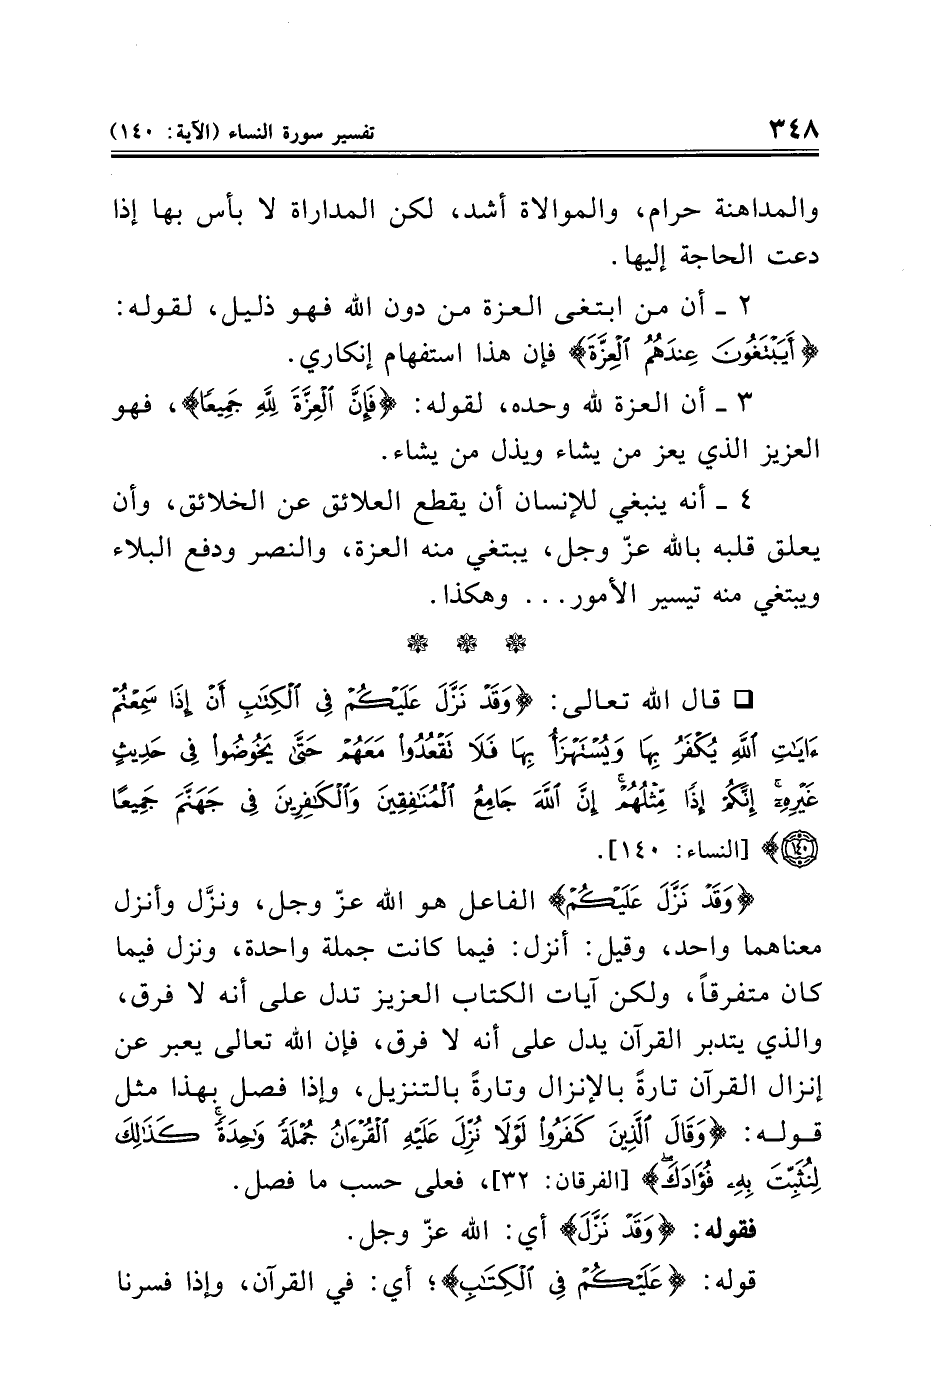 ٣٤٨ تفسير سورة النساء (الآية: ١٤٠)
والمداهنة حرام، والموالاة أشد، لكن المداراة لا بأس بها إذا
دعت الحاجة إليها.
٢ ـ أن من ابتغى العزة من دون الله فهو ذليل، لقوله:
﴿أَيَبْتَغُونَ عِندَهُمُ ٱلْعِزَّةَ﴾ فإن هذا استفهام إنكاري.
٣ ـ أن العزة لله وحده، لقوله: ﴿فَإِنَّ ٱلْعِزَّةَ لِلَّهِ جَمِيعًا﴾، فهو
العزيز الذي يعز من يشاء ويذل من يشاء.
٤ ـ أنه ينبغي للإنسان أن يقطع العلائق عن الخلائق، وأن
يعلق قلبه بالله عزّ وجل، يبتغي منه العزة، والنصر ودفع البلاء
ويبتغي منه تيسير الأمور... وهكذا.
❁ ❁ ❁
❑ قال الله تعالى: ﴿وَقَدْ نَزَّلَ عَلَيْكُمْ فِى ٱلْكِتَٰبِ أَنْ إِذَا سَمِعْتُمْ
ءَايَٰتِ ٱللَّهِ يُكْفَرُ بِهَا وَيُسْتَهْزَأُ بِهَا فَلَا نَقْعُدُوا۟ مَعَهُمْ حَتَّىٰ يَخُوضُوا۟ فِى حَدِيثٍ
غَيْرِهِۦٓ ۚ إِنَّكُمْ إِذًا مِّثْلُهُمْ ۗ إِنَّ ٱللَّهَ جَامِعُ ٱلْمُنَٰفِقِينَ وَٱلْكَٰفِرِينَ فِى جَهَنَّمَ جَمِيعًا
﴿١٤٠﴾﴾ [النساء: ١٤٠].
﴿وَقَدْ نَزَّلَ عَلَيْكُمْ﴾ الفاعل هو الله عزّ وجل، ونزَّل وأنزل
معناهما واحد، وقيل: أنزل: فيما كانت جملة واحدة، ونزل فيما
كان متفرقاً، ولكن آيات الكتاب العزيز تدل على أنه لا فرق،
والذي يتدبر القرآن يدل على أنه لا فرق، فإن الله تعالى يعبر عن
إنزال القرآن تارةً بالإنزال وتارةً بالتنزيل، وإذا فصل بهذا مثل
قوله: ﴿وَقَالَ ٱلَّذِينَ كَفَرُوا۟ لَوْلَا نُزِّلَ عَلَيْهِ ٱلْقُرْءَانُ جُمْلَةً وَٰحِدَةً ۚ كَذَٰلِكَ
لِنُثَبِّتَ بِهِۦ فُؤَادَكَ ۖ﴾ [الفرقان: ٣٢]، فعلى حسب ما فصل.
فقوله: ﴿وَقَدْ نَزَّلَ﴾ أي: الله عزّ وجل.
قوله: ﴿عَلَيْكُمْ فِى ٱلْكِتَٰبِ﴾؛ أي: في القرآن، وإذا فسرنا